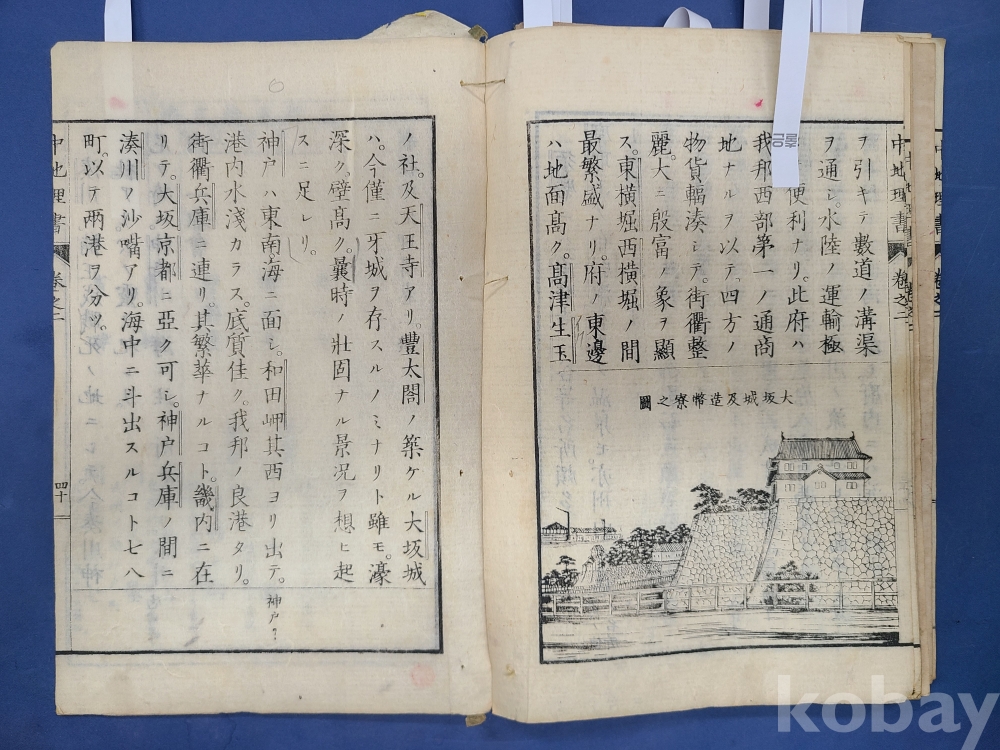 中地理書 卷之二
ヲ引キテ數道ノ溝渠
ヲ通シ。水陸ノ運輸極
便利ナリ。此府ハ
我邦西部第一ノ通商
地ナルヲ以テ四方ノ
物貨輻湊シテ。街衢整
麗。大ニ殷富ノ象ヲ顯
ス。東橫堀西橫堀ノ間
最繁盛ナリ。府ノ東邊
ハ地面高ク。髙津生玉
大坂城及造幣寮之圖
ノ社。及天王寺アリ。豐太閤ノ築ケル大坂城
ハ。今僅ニ牙城ヲ存スルノミナリト雖モ。濠
深ク。壁髙ク。曩時ノ壯固ナル景况ヲ想ヒ起
スニ足レリ。
神戸ハ東南海ニ面シ。和田岬其西ヨリ出テ。
神戸
港内水淺カラス。底質佳ク。我邦ノ良港タリ。
街衢兵庫ニ連リ。其繁華ナルコト。畿内ニ在
リテ。大坂京都ニ亞ク可シ。神戸兵庫ノ間ニ
湊川ノ沙嘴アリ。海中ニ斗出スルコト七八
町。以テ兩港ヲ分ツ。
中地理書 卷之二 四十
kobay